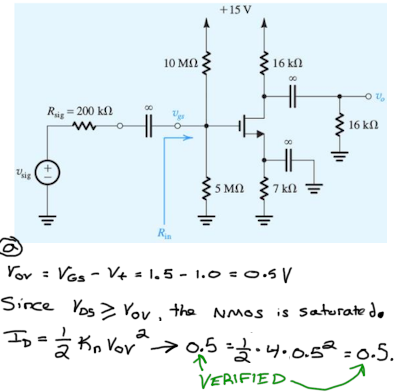 +15 V
10 MΩ
16 kΩ
∞
Rsig = 200 kΩ
∞
Vgs
∞
vo
16 kΩ
vsig
+
−
5 MΩ
7 kΩ
Rin
(a)
Vov = VGS - Vt = 1.5 - 1.0 = 0.5 V
Since VDS ≥ VOV, the NMOS is saturated.
ID = 1/2 Kn Vov² → 0.5 = 1/2 · 4 · 0.5² = 0.5.
VERIFIED